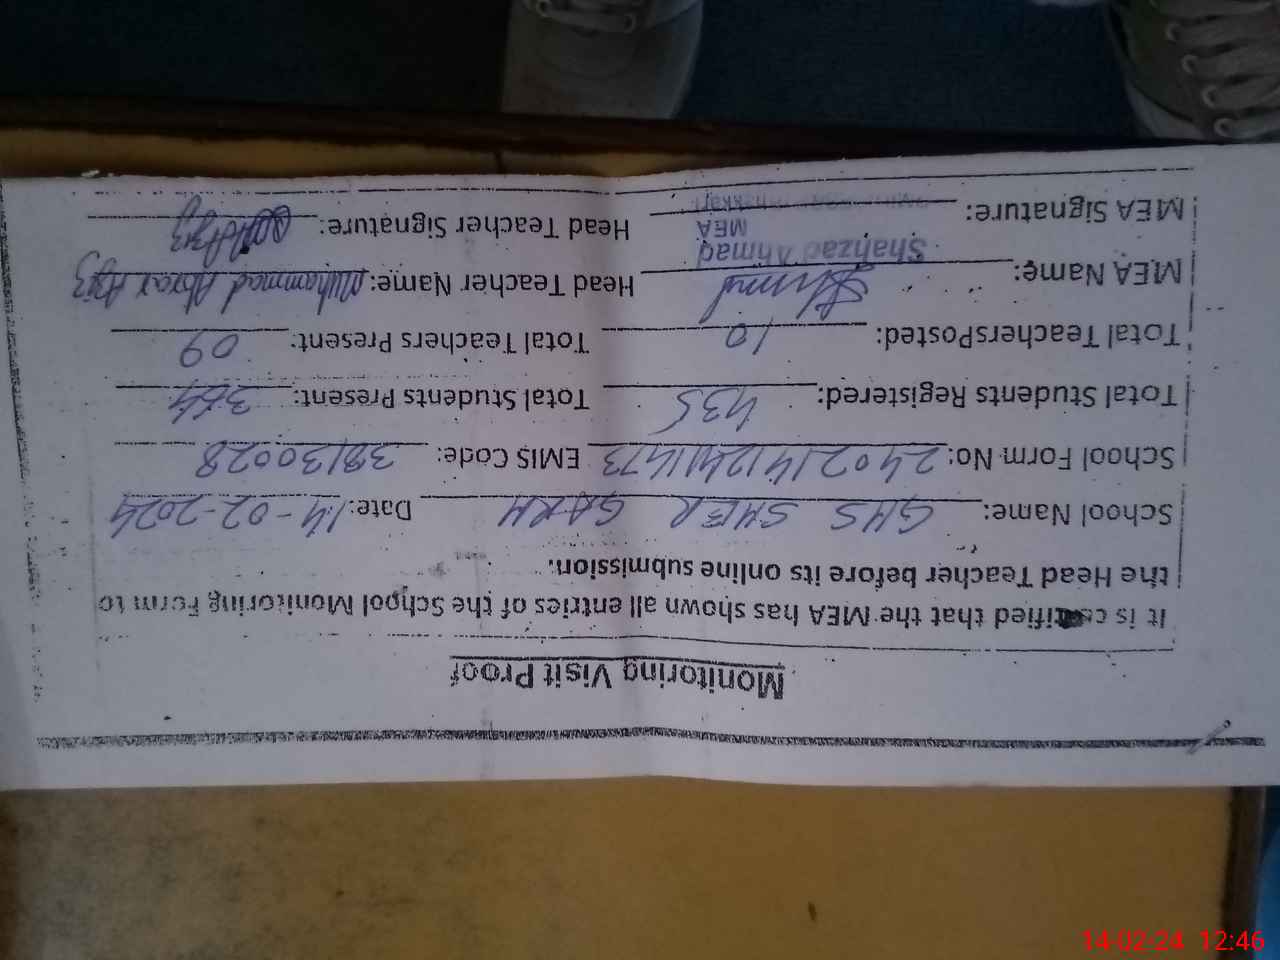 Monitoring Visit Proof
It is certified that the MEA has shown all entries of the School Monitoring Form to
the Head Teacher before its online submission.
School Name: GHS SHER GARH Date: 14-02-2024
School Form No: 2402141241473 EMIS Code: 38130028
Total Students Registered: 435 Total Students Present: 364
Total TeachersPosted: 10 Total Teachers Present: 09
MEA Name: Head Teacher Name: Muhammad Abrar Ayaz
Shahzad Ahmad
MEA
MEA Signature: Head Teacher Signature:
14-02-24 12:46